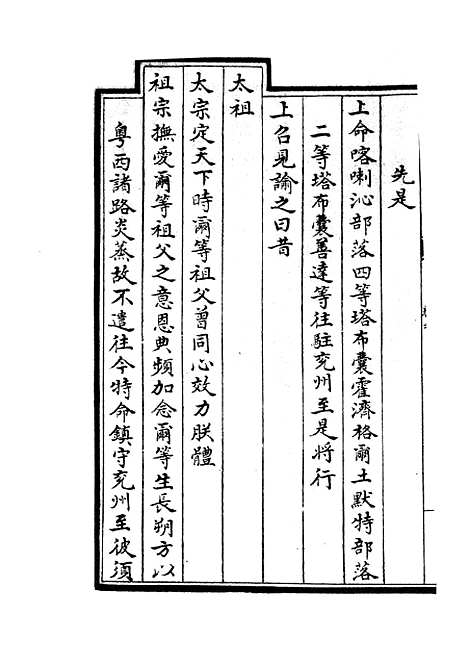 先是
上命喀喇沁部落四等塔布囊霍濟格爾土默特部落
二等塔布囊善達等往駐兖州至是將行
上召見諭之曰昔
太祖
太宗定天下時爾等祖父曾同心效力朕體
祖宗撫愛爾等祖父之意恩典頻加念爾等生長朔方以
粤西諸路炎蒸故不遣往今特命鎮守兖州至彼須